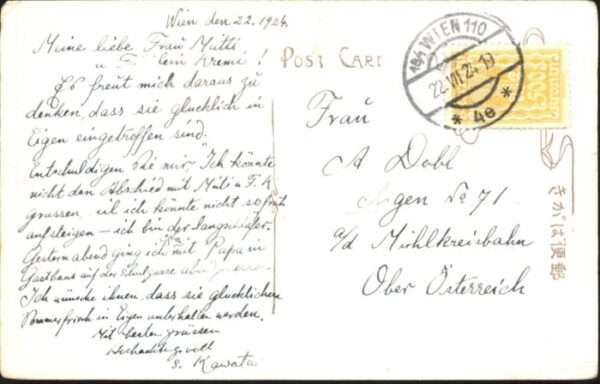 Wien den 22. 1924
Meine liebe Frau Mutti
u
Es freut mich daraus zu
denken, dass sie glücklich in
Eigen eingetroffen sind.
Entschuldigen Sie mir, Ich könnte
nicht den Abshied mit Muti u. F. K
grussen, ich könnte nicht so früh
aufsteigen – ich bin der
Gestern abend ging ich mit Papa in
Gasthaus auf der
Ich wünsche ihnen, dass sie glücklichen
in Eigen unterhalten werden.
Mit besten grüssen
Hochachtungsvoll
S. Kawata
POST CARD
184 WIEN 110
22.VII.24.19
* 4e *
5000
Frau
A Dobl
Aigen No 71
a/d Mühlkreisbahn
Ober Österreich
きかは便郵